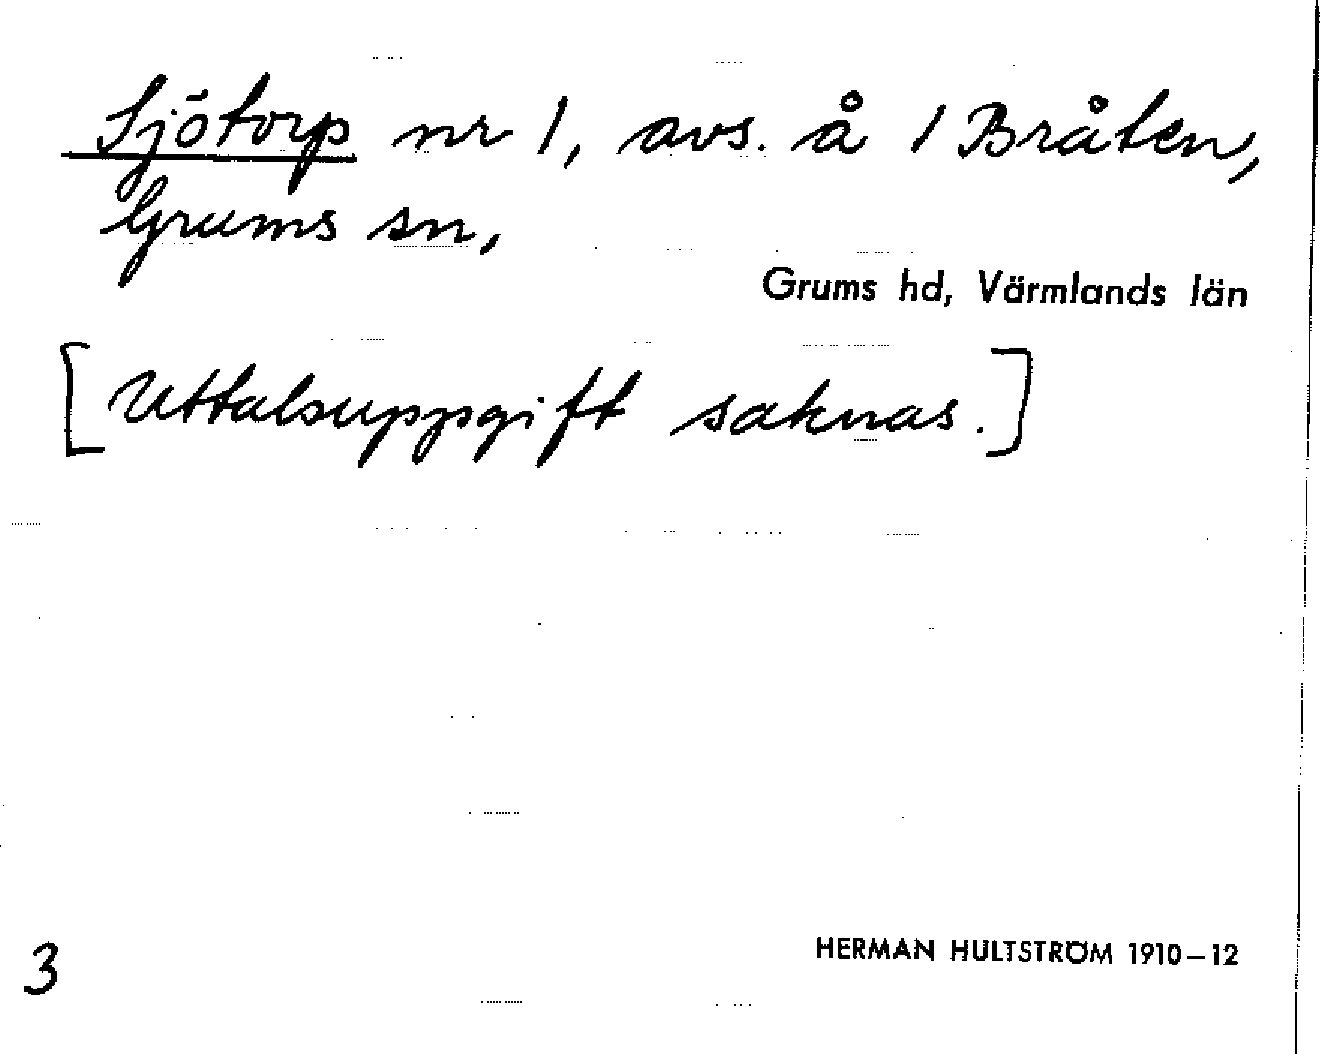 Sjötorp nr 1, avs. å 1 Bråten,
Grums sn,
Grums hd, Värmlands län
[Uttalsuppgift saknas.]
HERMAN HULTSTRÖM 1910–12
3